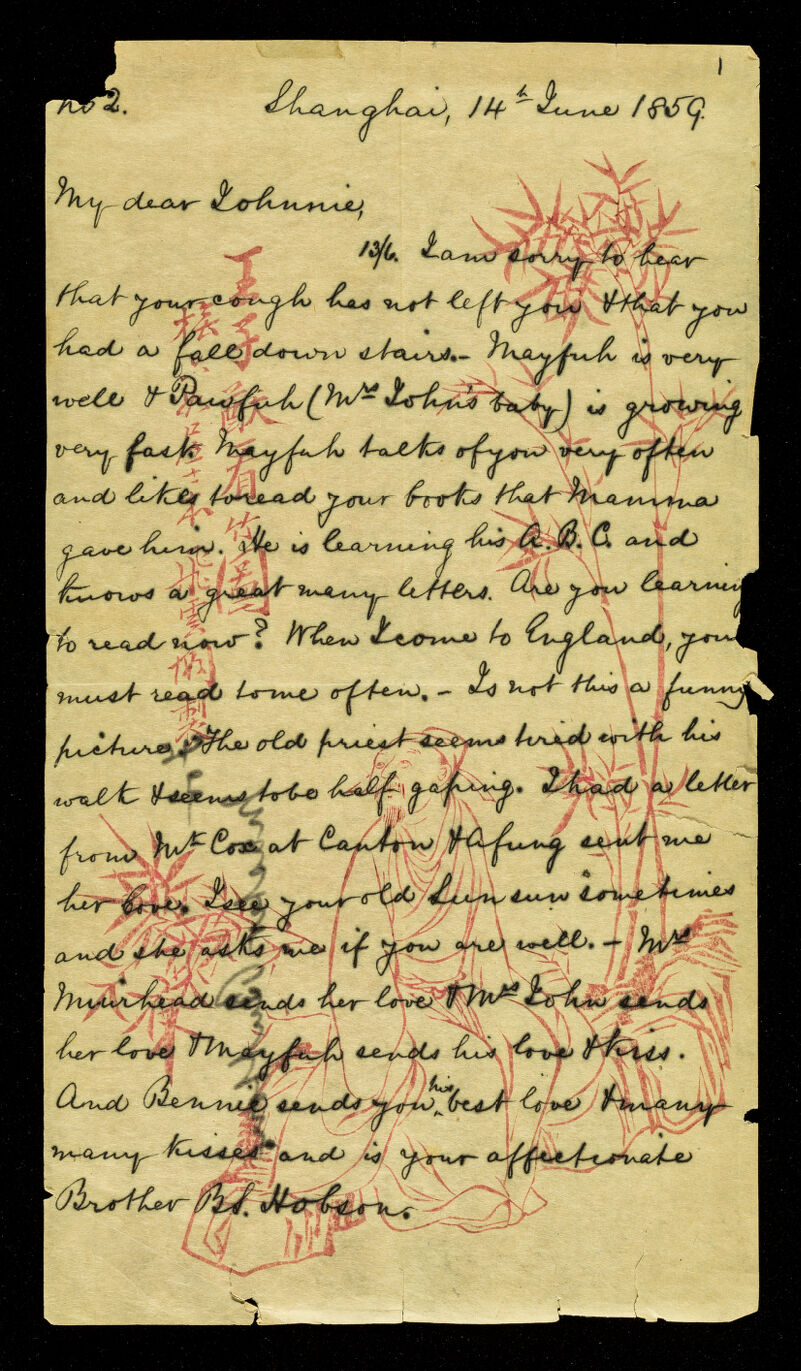 1
no 2. Shanghai, 14th June 1859.
My dear Johnnie,
13/6. I am sorry to hear
that your cough has not left you & that you
had a fall down stairs. – Mayfuh is very
well & Pawfuh (Mrs John's baby) is growing
very fast. Mayfuh talks of you very often
and likes to read your books that Mamma
gave him. He is learning his A. B. C. and
knows a great many letters. Are you learning
to read now? When I come to England, you
must read to me often. – Is not this a funny
picture. The old priest seems tired with his
walk & seems to be half gaping. I had a letter
from Mr Cox at Canton & Afung sent me
her love. I see your old Sun sun sometimes
and she asks me if you are well. – Mrs
Muirhead sends her love & Mrs John sends
her love & Mayfuh sends his love & kiss.
And Bennie sends you his best love & many
many kisses and is your affectionate
Brother B.S. Hobson.
王子猷看竹圖